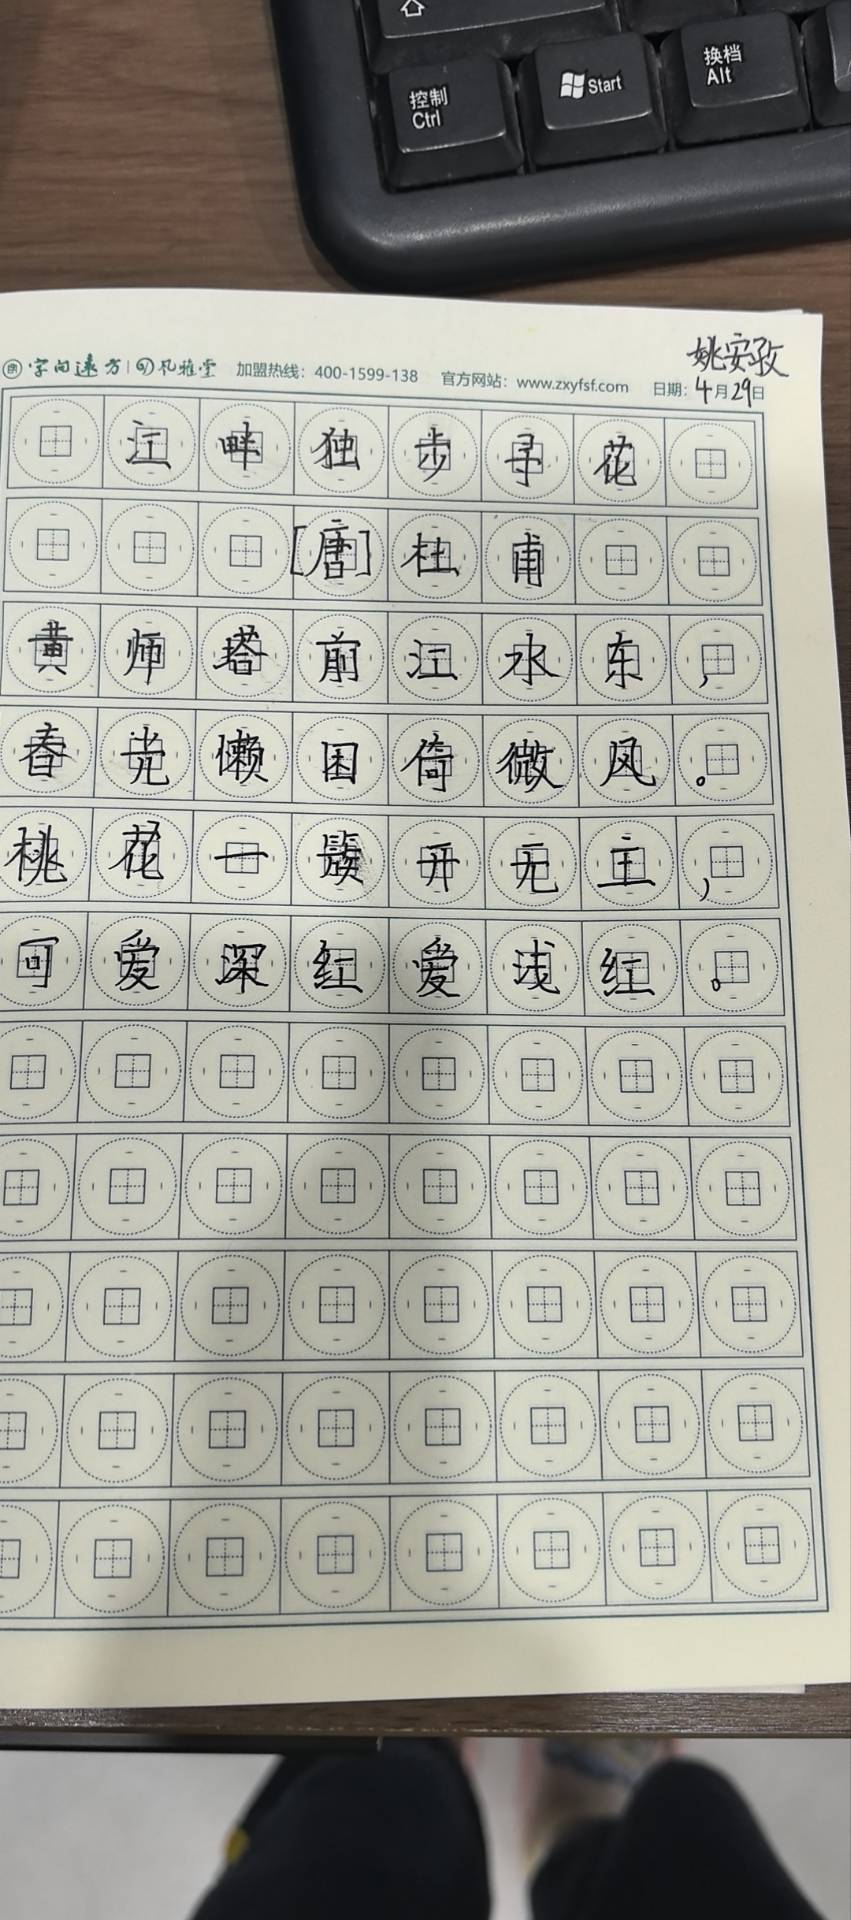 控制
Ctrl
Start
换档
Alt
姚安孜
字向遠方 风雅堂 加盟热线：400-1599-138 官方网站：www.zxyfsf.com 日期：4月29日
江畔独步寻花
[唐]杜甫
黄师塔前江水东，
春光懒困倚微风。
桃花一簇开无主，
可爱深红爱浅红。